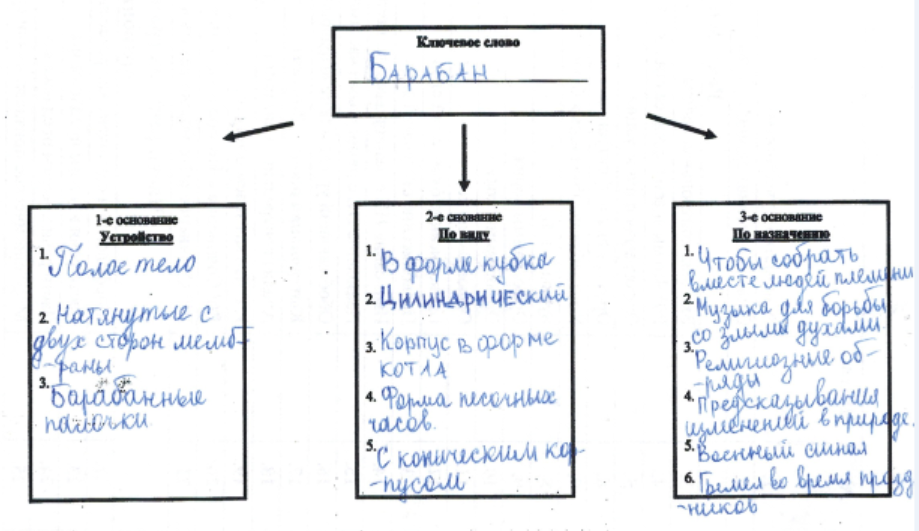 Ключевое слово
Барабан
1-е основание
Устройство
1. Полое тело
2. Натянутые с
двух сторон мемб-
-раны
3. Барабанные
палочки
2-е снование
По виду
1. В форме кубка
2. Цилиндрический
3. Корпус в форме
котла
4. Форма песочных
часов.
5. С коническим кор-
-пусом
3-е основание
По назначению
1. Чтобы собрать
вместе людей племени
2. Музыка для борьбы
со злыми духами.
3. Религиозные об-
-ряды
4. Предсказывания
изменений в природе.
5. Военный сигнал
6. Гремел во время празд
-ников